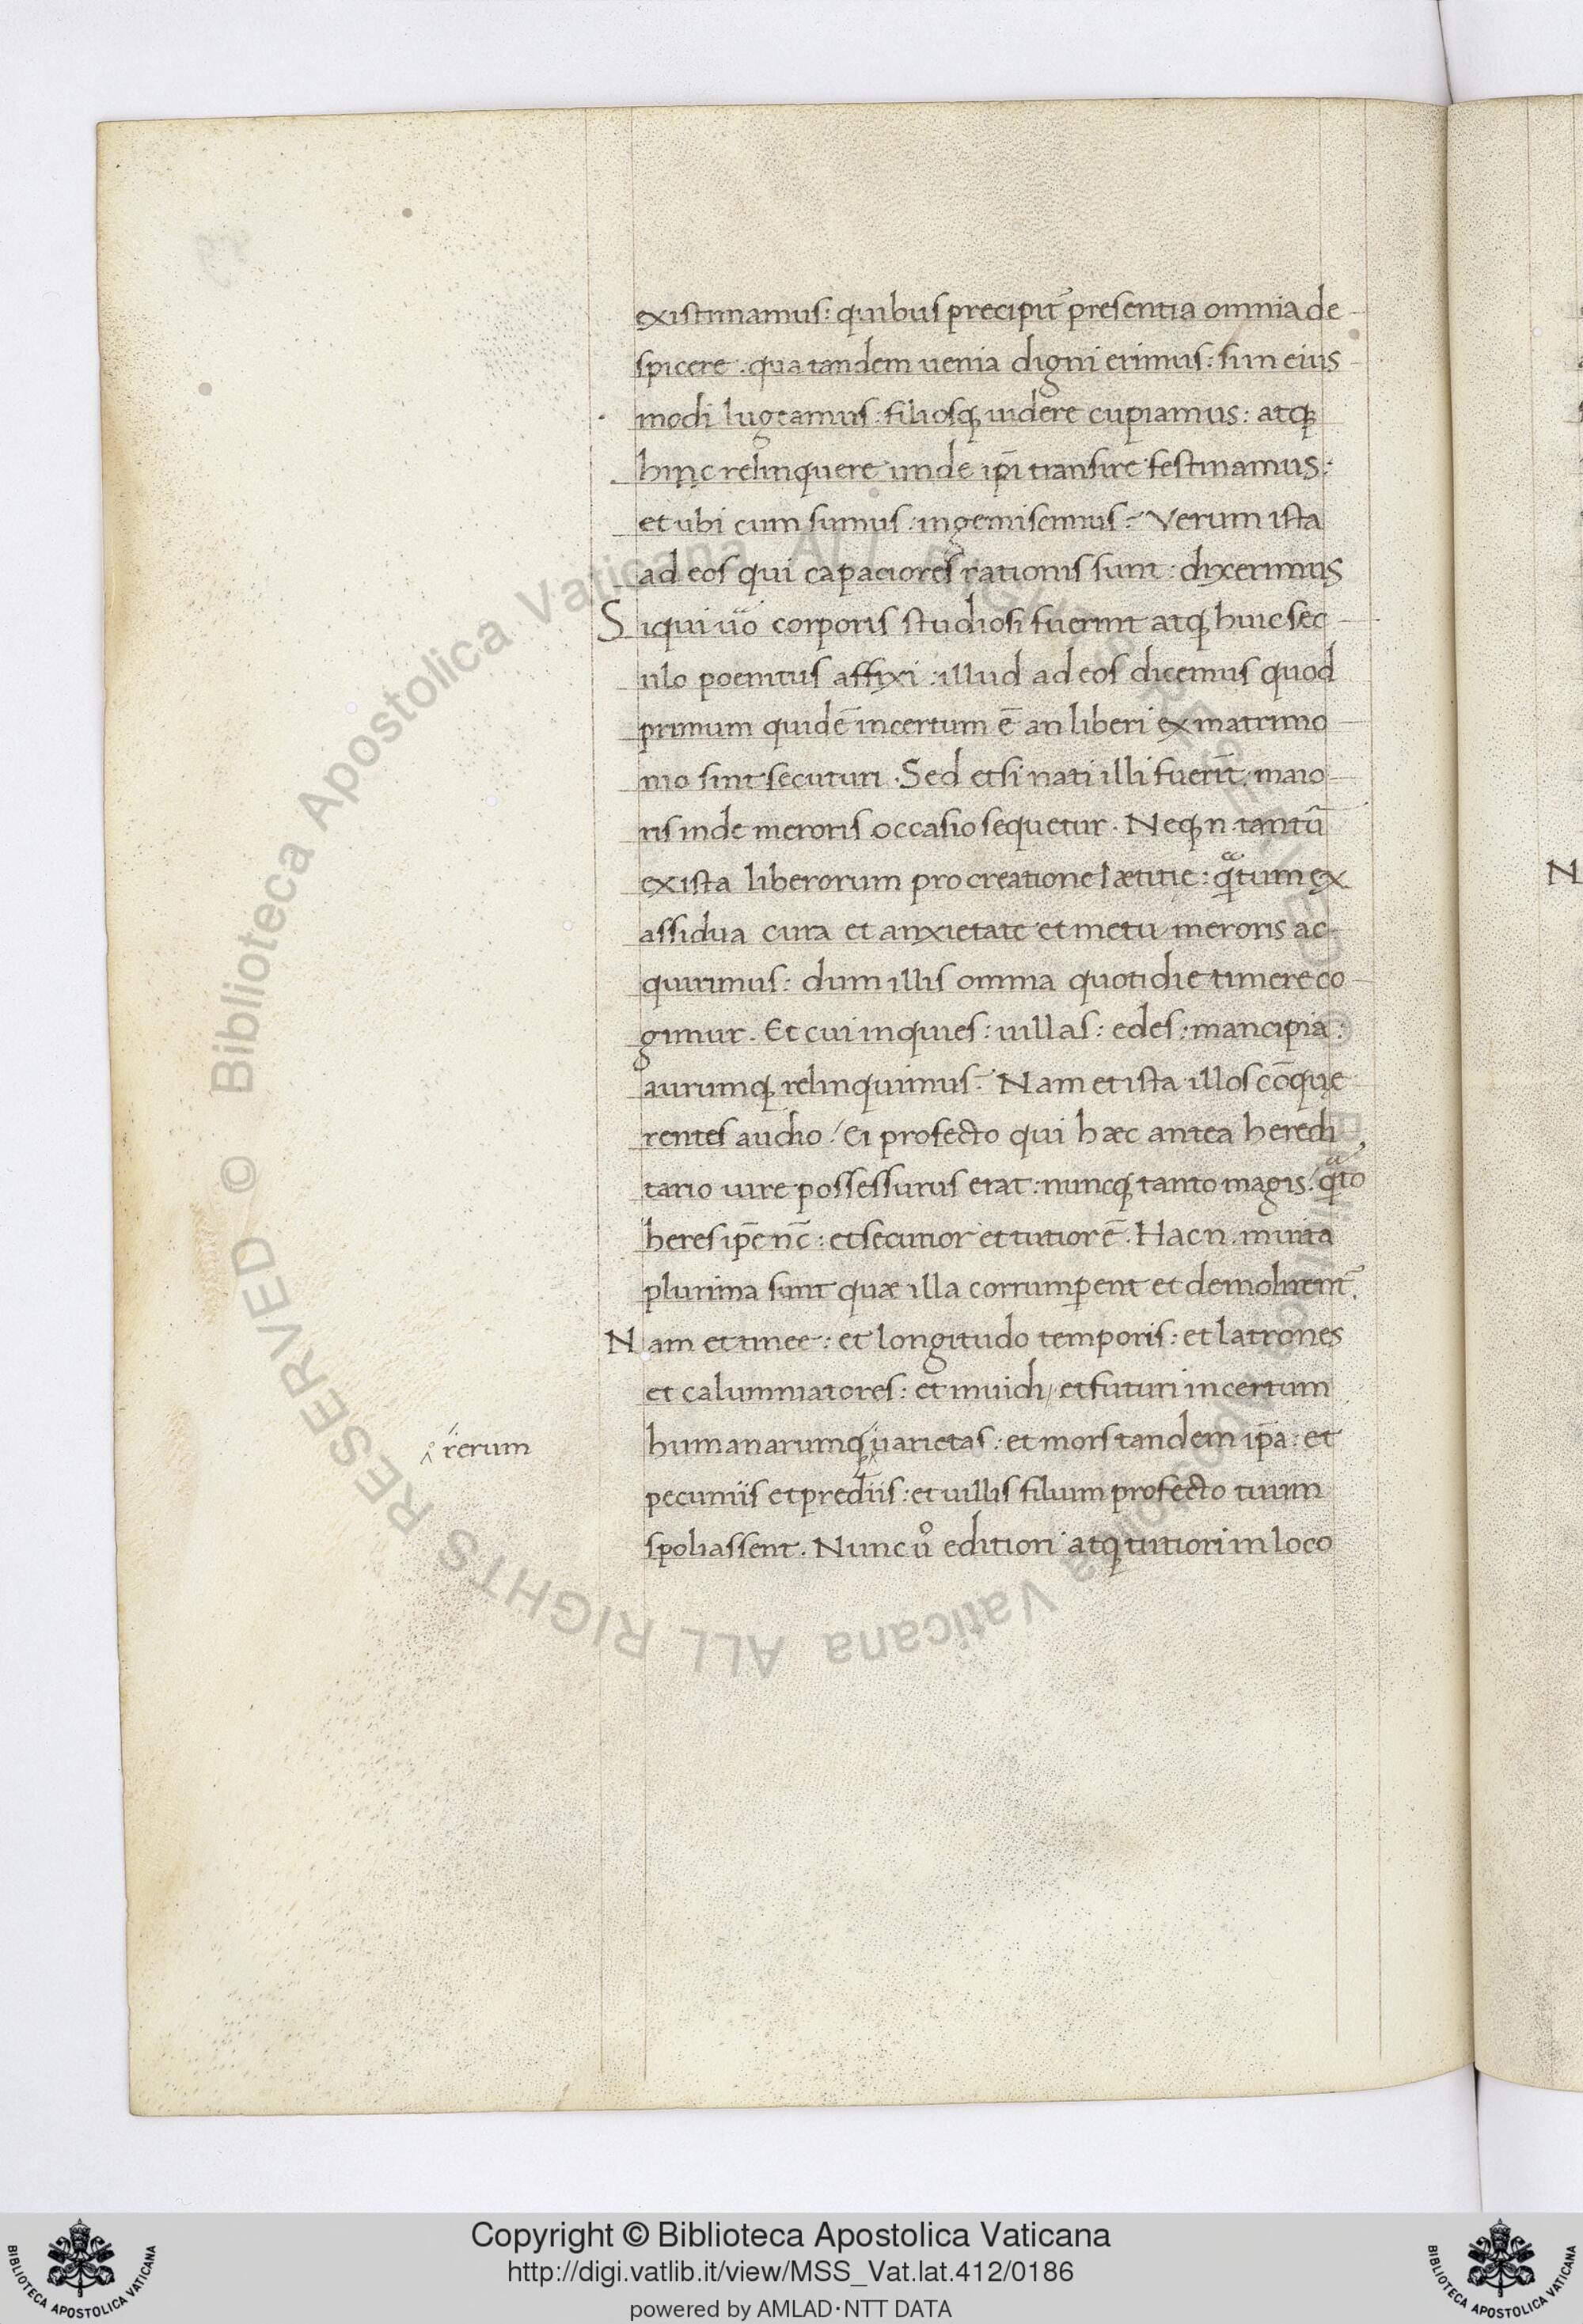 existimamus: quibus precipit᷑ presentia omnia de
spicere. qua tandem uenia digni erimus: si in eius
modi lugeamus: filiosq; uidere cupiamus: atq;
hinc relinquere unde ip̄i transire festinamus:
et ubi cum sumus: ingemiscimus: Verum ista
ad eos qui capaciores rationis sunt: dixerimus
Siqui uo᷑ corporis studiosi fuerint atq; huic sec
ulo poenitus affixi: illud ad eos dicemus quod
primum quidē incertum ē an liberi ex matrimo
nio sint secuturi. Sed etsi nati illi fuerīt, maio
ris inde meroris occasio sequetur. Neq; n. tantū
ex ista liberorum procreatione lætitie: qᵃtum ex
assidua cura et anxietate et metu meroris ac
quirimus: dum illis omnia quotidie timere co
gimur. Et cui inquies: uillas: edes: mancipia:
aurumq; relinquimus: Nam et ista illos cōque
rentes audio. Ei profecto qui hæc antea heredi
tario iure possessurus erat: nuncq; tanto magis: qᵃto
heres ip̄e nc̄: et securior et tutior ē. Hac n. in uita
plurima sunt quæ illa corrumperent et demolirent᷑.
Nam et tinee: et longitudo temporis: et latrones
et calumniatores: et inuidi, et futuri incertum
humanarumq; uarietas: et mors tandem ip̄a: et
rerum
pecuniis et prediis: et uillis filium profecto tuum
spoliassent. Nunc uº editiori atq; tutiori in loco
Copyright © Biblioteca Apostolica Vaticana
http://digi.vatlib.it/view/MSS_Vat.lat.412/0186
powered by AMLAD·NTT DATA
BIBLIOTECA APOSTOLICA VATICANA
BIBLIOTECA APOSTOLICA VATICANA
N